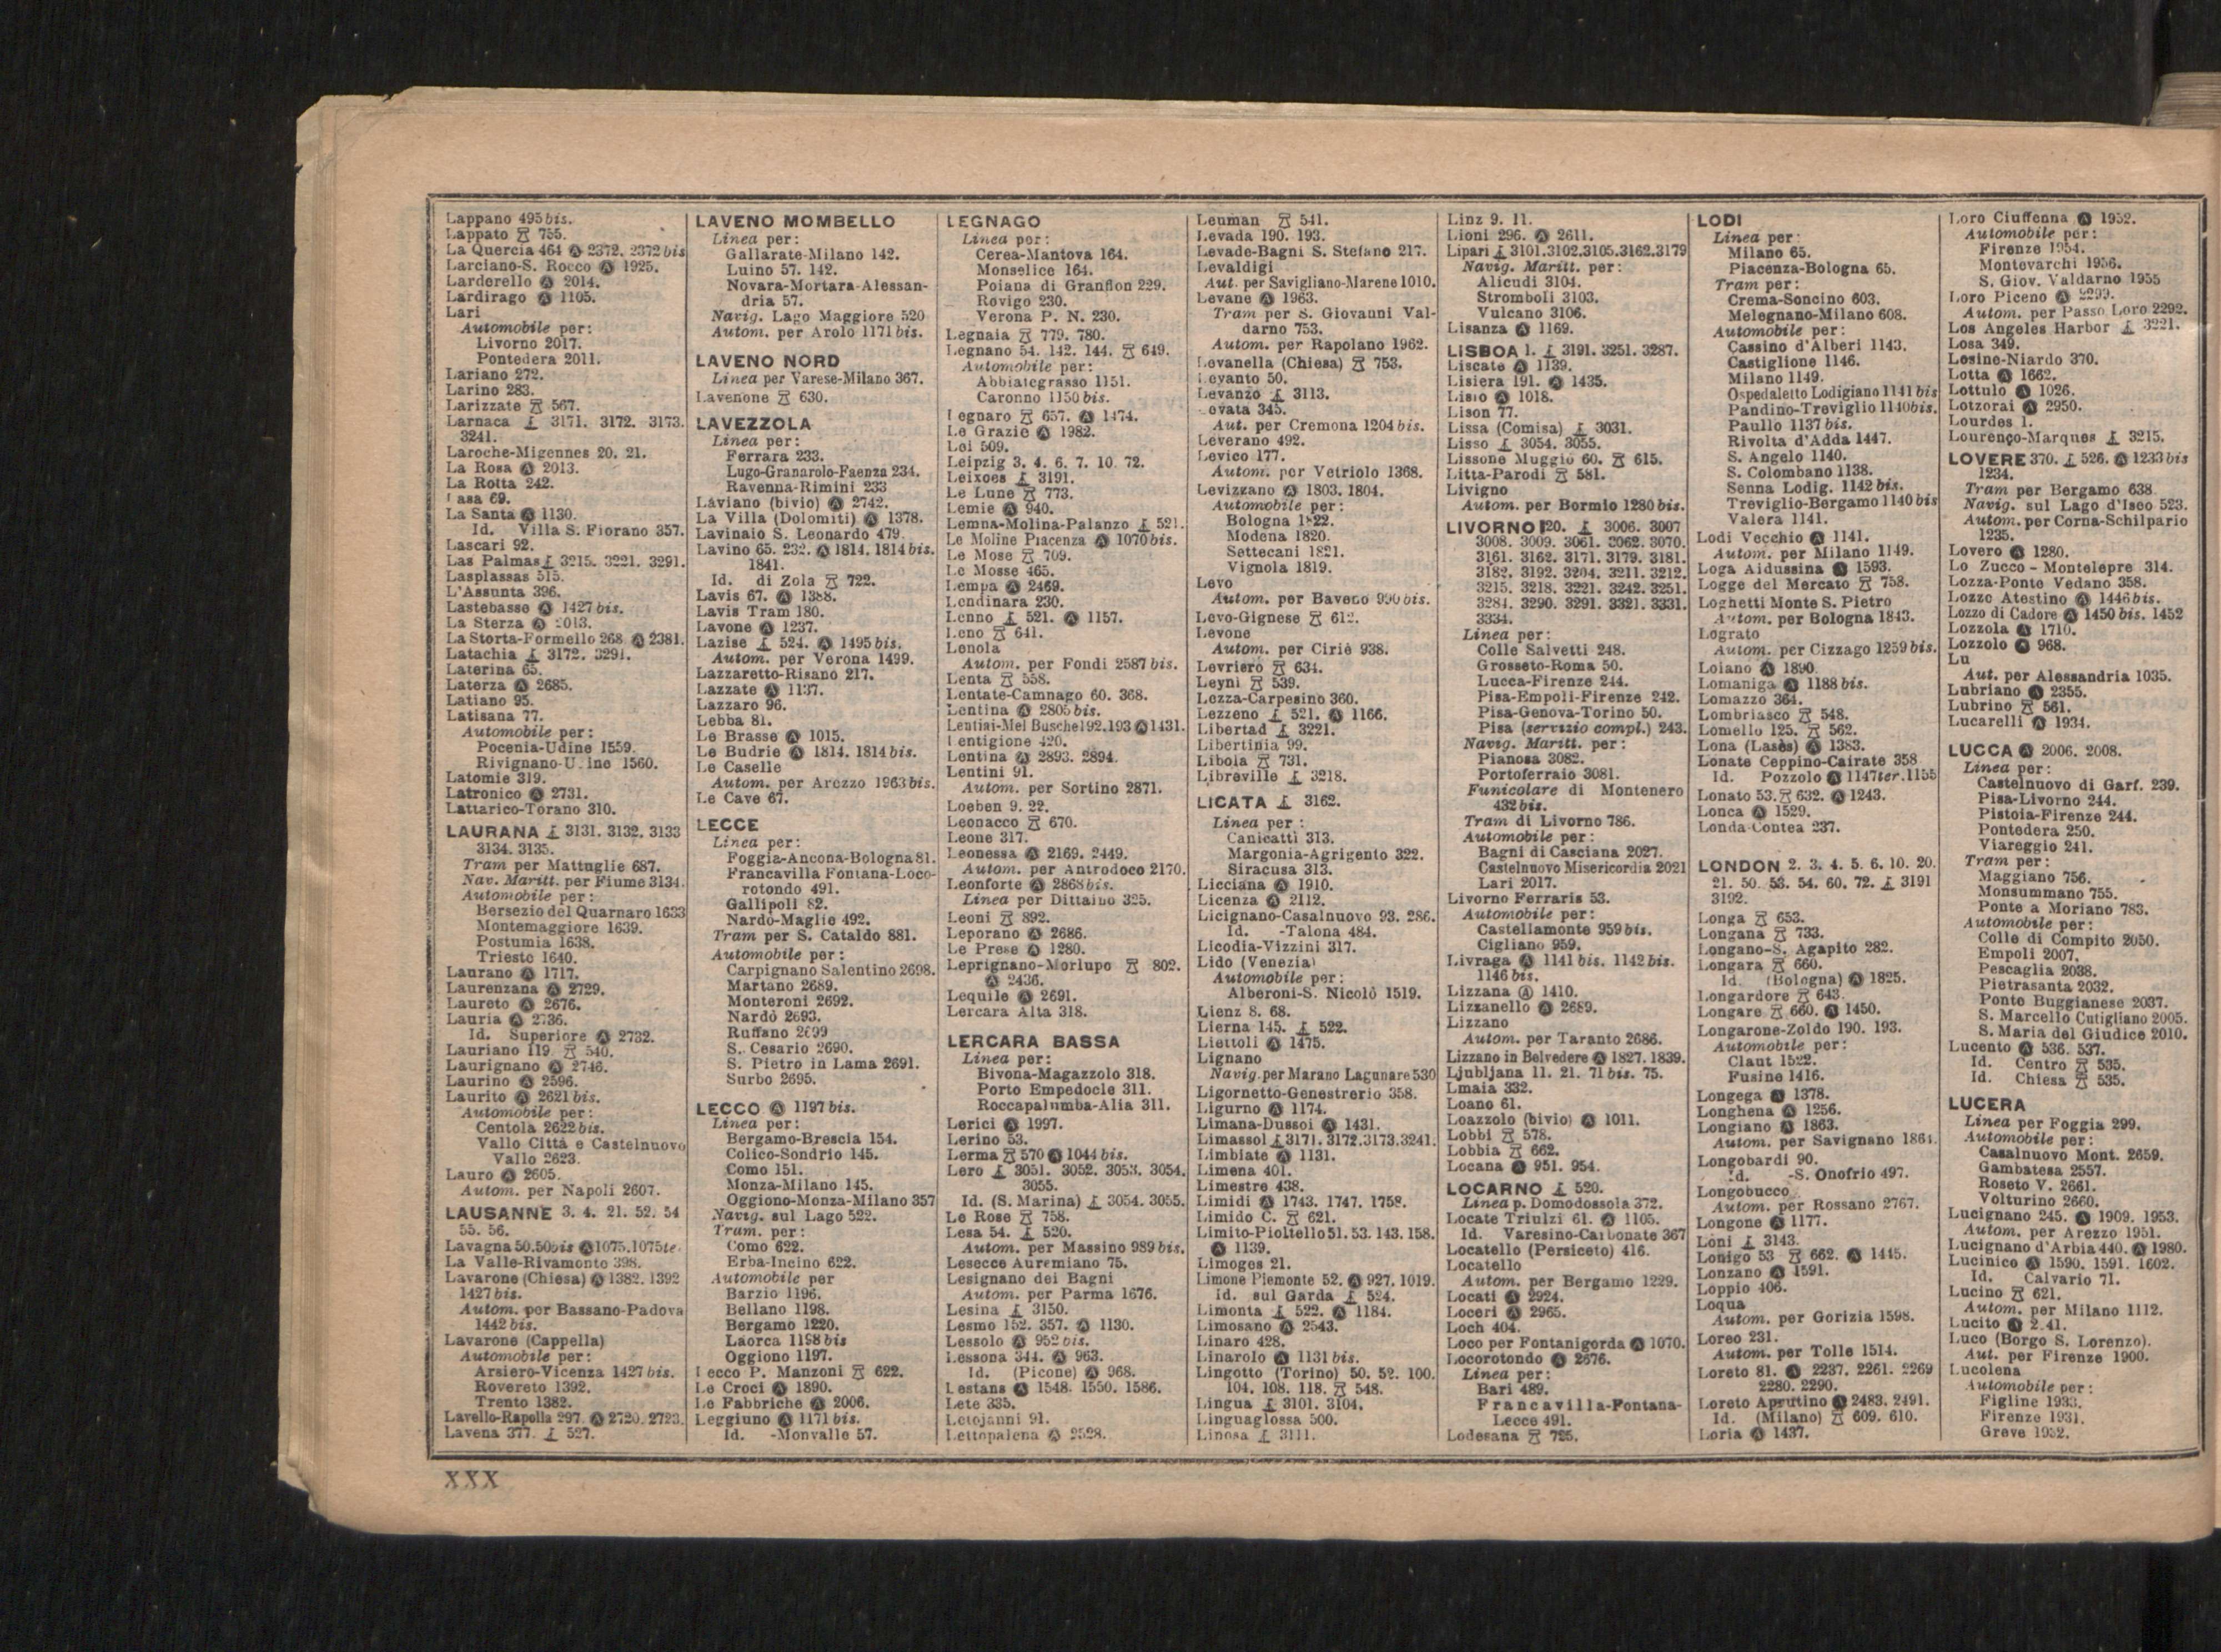 Lappano 495 bis.
Lappato 755.
La Quercia 464 Ⓐ 2372. 2372 bis
Larciano-S. Rocco Ⓐ 1925.
Larderello Ⓐ 2014.
Lardirago Ⓐ 1105.
Lari
Automobile per:
Livorno 2017.
Pontedera 2011.
Lariano 272.
Larino 283.
Larizzate 567.
Larnaca 3171. 3172. 3173.
3241.
Laroche-Migennes 20. 21.
La Rosa Ⓐ 2013.
La Rotta 242.
Lasa 69.
La Santa Ⓐ 1130.
Id. Villa S. Fiorano 357.
Lascari 92.
Las Palmas 3215. 3221. 3291.
Lasplassas 515.
L'Assunta 396.
Lastebasse Ⓐ 1427 bis.
La Sterza Ⓐ 2013.
La Storta-Formello 268 Ⓐ 2381.
Latachia 3172. 3291.
Laterina 65.
Laterza Ⓐ 2685.
Latiano 95.
Latisana 77.
Automobile per:
Pocenia-Udine 1559.
Rivignano-Udine 1560.
Latomie 319.
Latronico Ⓐ 2731.
Lattarico-Torano 310.
LAURANA 3131. 3132. 3133
3134. 3135.
Tram per Mattuglie 687.
Nav. Maritt. per Fiume 3134.
Automobile per:
Bersezio del Quarnaro 1633
Montemaggiore 1639.
Postumia 1638.
Trieste 1640.
Laurano Ⓐ 1717.
Laurenzana Ⓐ 2729.
Laureto Ⓐ 2676.
Lauria Ⓐ 2736.
Id. Superiore Ⓐ 2732.
Lauriano 119. 540.
Laurignano Ⓐ 2746.
Laurino Ⓐ 2596.
Laurito Ⓐ 2621 bis.
Automobile per:
Centola 2622 bis.
Vallo Città e Castelnuovo
Vallo 2623.
Lauro Ⓐ 2605.
Autom. per Napoli 2607.
LAUSANNE 3. 4. 21. 52. 54
55. 56.
Lavagna 50. 50 bis Ⓐ 1075. 1075 te
La Valle-Rivamonte 398.
Lavarone (Chiesa) Ⓐ 1382. 1392
1427 bis.
Autom. per Bassano-Padova
1442 bis.
Lavarone (Cappella)
Automobile per:
Arsiero-Vicenza 1427 bis.
Rovereto 1392.
Trento 1382.
Lavello-Rapolla 297. Ⓐ 2720. 2723.
Lavena 377. 527.
LAVENO MOMBELLO
Linea per:
Gallarate-Milano 142.
Luino 57. 142.
Novara-Mortara-Alessan-
dria 57.
Navig. Lago Maggiore 520
Autom. per Arolo 1171 bis.
LAVENO NORD
Linea per Varese-Milano 367.
Lavenone 630.
LAVEZZOLA
Linea per:
Ferrara 233.
Lugo-Granarolo-Faenza 234.
Ravenna-Rimini 233
Laviano (bivio) Ⓐ 2742.
La Villa (Dolomiti) Ⓐ 1378.
Lavinaio S. Leonardo 479.
Lavino 65. 232. Ⓐ 1814. 1814 bis.
1841.
Id. di Zola 722.
Lavis 67. Ⓐ 1388.
Lavis Tram 180.
Lavone Ⓐ 1237.
Lazise 524. Ⓐ 1495 bis.
Autom. per Verona 1499.
Lazzaretto-Risano 217.
Lazzate Ⓐ 1137.
Lazzaro 96.
Lebba 81.
Le Brasse Ⓐ 1015.
Le Budrie Ⓐ 1814. 1814 bis.
Le Caselle
Autom. per Arezzo 1963 bis.
Le Cave 67.
LECCE
Linea per:
Foggia-Ancona-Bologna 81.
Francavilla Fontana-Loco-
rotondo 491.
Gallipoli 82.
Nardò-Maglie 492.
Tram per S. Cataldo 881.
Automobile per:
Carpignano Salentino 2698.
Martano 2689.
Monteroni 2692.
Nardò 2693.
Ruffano 2699
S. Cesario 2690.
S. Pietro in Lama 2691.
Surbo 2695.
LECCO Ⓐ 1197 bis.
Linea per:
Bergamo-Brescia 154.
Colico-Sondrio 145.
Como 151.
Monza-Milano 145.
Oggiono-Monza-Milano 357
Navig. sul Lago 522.
Tram. per:
Como 622.
Erba-Incino 622.
Automobile per
Barzio 1196.
Bellano 1198.
Bergamo 1220.
Laorca 1198 bis
Oggiono 1197.
Lecco P. Manzoni 622.
Le Croci Ⓐ 1890.
Le Fabbriche Ⓐ 2006.
Leggiuno Ⓐ 1171 bis.
Id. -Monvalle 57.
LEGNAGO
Linea per:
Cerea-Mantova 164.
Monselice 164.
Poiana di Granfion 229.
Rovigo 230.
Verona P. N. 230.
Legnaia 779. 780.
Legnano 54. 142. 144. 649.
Automobile per:
Abbiategrasso 1151.
Caronno 1150 bis.
Legnaro 657. Ⓐ 1474.
Le Grazie Ⓐ 1982.
Lei 509.
Leipzig 3. 4. 6. 7. 10. 72.
Leixoes 3191.
Le Lune 773.
Lemie Ⓐ 940.
Lemna-Molina-Palanzo 521.
Le Moline Piacenza Ⓐ 1070 bis.
Le Mose 709.
Le Mosse 465.
Lempa Ⓐ 2469.
Lendinara 230.
Lenno 521. Ⓐ 1157.
Leno 641.
Lenola
Autom. per Fondi 2587 bis.
Lenta 558.
Lentate-Camnago 60. 368.
Lentina Ⓐ 2805 bis.
Lentiai-Mel Busche 192. 193 Ⓐ 1431.
Lentigione 420.
Lentina Ⓐ 2893. 2894.
Lentini 91.
Autom. per Sortino 2871.
Loeben 9. 22.
Leonacco 670.
Leone 317.
Leonessa Ⓐ 2169. 2449.
Autom. per Antrodoco 2170.
Leonforte Ⓐ 2868 bis.
Linea per Dittaino 325.
Leoni 892.
Leporano Ⓐ 2686.
Le Prese Ⓐ 1280.
Leprignano-Morlupo 802.
Ⓐ 2436.
Lequile Ⓐ 2691.
Lercara Alta 318.
LERCARA BASSA
Linea per:
Bivona-Magazzolo 318.
Porto Empedocle 311.
Roccapalumba-Alia 311.
Lerici Ⓐ 1997.
Lerino 53.
Lerma 570 Ⓐ 1044 bis.
Lero 3051. 3052. 3053. 3054.
3055.
Id. (S. Marina) 3054. 3055.
Le Rose 758.
Lesa 54. 520.
Autom. per Massino 989 bis.
Lesecce Auremiano 75.
Lesignano dei Bagni
Autom. per Parma 1676.
Lesina 3150.
Lesmo 152. 357. Ⓐ 1130.
Lessolo Ⓐ 952 bis.
Lessona 344. Ⓐ 963.
Id. (Picone) Ⓐ 968.
Lestans Ⓐ 1548. 1550. 1586.
Lete 335.
Letojanni 91.
Lettopalena Ⓐ 2528.
Leuman 541.
Levada 190. 193.
Levade-Bagni S. Stefano 217.
Levaldigi
Aut. per Savigliano-Marene 1010.
Levane Ⓐ 1963.
Tram per S. Giovanni Val-
darno 753.
Autom. per Rapolano 1962.
Levanella (Chiesa) 753.
Levanto 50.
Levanzo 3113.
Levata 345.
Aut. per Cremona 1204 bis.
Leverano 492.
Levico 177.
Autom. per Vetriolo 1368.
Levizzano Ⓐ 1803. 1804.
Automobile per:
Bologna 1822.
Modena 1820.
Settecani 1821.
Vignola 1819.
Levo
Autom. per Baveno 990 bis.
Levo-Gignese 612.
Levone
Autom. per Ciriè 938.
Levriero 634.
Leyni 539.
Lezza-Carpesino 360.
Lezzeno 521. Ⓐ 1166.
Libertad 3221.
Libertinia 99.
Libola 731.
Libreville 3218.
LICATA 3162.
Linea per:
Canicattì 313.
Margonia-Agrigento 322.
Siracusa 313.
Licciana Ⓐ 1910.
Licenza Ⓐ 2112.
Licignano-Casalnuovo 93. 286.
Id. -Talona 484.
Licodia-Vizzini 317.
Lido (Venezia)
Automobile per:
Alberoni-S. Nicolò 1519.
Lienz 8. 68.
Lierna 145. 522.
Liettoli Ⓐ 1475.
Lignano
Navig. per Marano Lagunare 530
Ligornetto-Genestrerio 358.
Ligurno Ⓐ 1174.
Limana-Dussoi Ⓐ 1431.
Limassol 3171. 3172. 3173. 3241.
Limbiate Ⓐ 1131.
Limena 401.
Limestre 438.
Limidi Ⓐ 1743. 1747. 1758.
Limido C. 621.
Limito-Pioltello 51. 53. 143. 158.
Ⓐ 1139.
Limoges 21.
Limone Piemonte 52. Ⓐ 927. 1019.
id. sul Garda 524.
Limonta 522. Ⓐ 1184.
Limosano Ⓐ 2543.
Linaro 428.
Linarolo Ⓐ 1131 bis.
Lingotto (Torino) 50. 52. 100.
104. 108. 118. 548.
Lingua 3101. 3104.
Linguaglossa 500.
Linosa 3111.
Linz 9. 11.
Lioni 296. Ⓐ 2611.
Lipari 3101. 3102. 3105. 3162. 3179
Navig. Maritt. per:
Alicudi 3104.
Stromboli 3103.
Vulcano 3106.
Lisanza Ⓐ 1169.
LISBOA 1. 3191. 3251. 3287.
Liscate Ⓐ 1139.
Lisiera 191. Ⓐ 1435.
Lisio Ⓐ 1018.
Lison 77.
Lissa (Comisa) 3031.
Lisso 3054. 3055.
Lissone Muggiò 60. 615.
Litta-Parodi 581.
Livigno
Autom. per Bormio 1280 bis.
LIVORNO 120. 3006. 3007
3008. 3009. 3061. 3062. 3070.
3161. 3162. 3171. 3179. 3181.
3182. 3192. 3204. 3211. 3212.
3215. 3218. 3221. 3242. 3251.
3284. 3290. 3291. 3321. 3331.
3334.
Linea per:
Colle Salvetti 248.
Grosseto-Roma 50.
Lucca-Firenze 244.
Pisa-Empoli-Firenze 242.
Pisa-Genova-Torino 50.
Pisa (servizio compl.) 243.
Navig. Maritt. per:
Pianosa 3082.
Portoferraio 3081.
Funicolare di Montenero
432 bis.
Tram di Livorno 786.
Automobile per:
Bagni di Casciana 2027.
Castelnuovo Misericordia 2021
Lari 2017.
Livorno Ferraris 53.
Automobile per:
Castellamonte 959 bis.
Cigliano 959.
Livraga Ⓐ 1141 bis. 1142 bis.
1146 bis.
Lizzana Ⓐ 1410.
Lizzanello Ⓐ 2689.
Lizzano
Autom. per Taranto 2686.
Lizzano in Belvedere Ⓐ 1827. 1839.
Ljubljana 11. 21. 71 bis. 75.
Lmaia 332.
Loano 61.
Loazzolo (bivio) Ⓐ 1011.
Lobbi 578.
Lobbia 662.
Locana Ⓐ 951. 954.
LOCARNO 520.
Linea p. Domodossola 372.
Locate Triulzi 61. Ⓐ 1105.
Id. Varesino-Carbonate 367
Locatello (Persiceto) 416.
Locatello
Autom. per Bergamo 1229.
Locati Ⓐ 2924.
Loceri Ⓐ 2965.
Loch 404.
Loco per Fontanigorda Ⓐ 1070.
Locorotondo Ⓐ 2676.
Linea per:
Bari 489.
Francavilla-Fontana-
Lecce 491.
Lodesana 725.
LODI
Linea per:
Milano 65.
Piacenza-Bologna 65.
Tram per:
Crema-Soncino 603.
Melegnano-Milano 608.
Automobile per:
Cassino d'Alberi 1143.
Castiglione 1146.
Milano 1149.
Ospedaletto Lodigiano 1141 bis
Pandino-Treviglio 1140 bis.
Paullo 1137 bis.
Rivolta d'Adda 1447.
S. Angelo 1140.
S. Colombano 1138.
Senna Lodig. 1142 bis.
Treviglio-Bergamo 1140 bis
Valera 1141.
Lodi Vecchio Ⓐ 1141.
Autom. per Milano 1149.
Loga Aidussina Ⓐ 1593.
Logge del Mercato 758.
Loghetti Monte S. Pietro
Autom. per Bologna 1843.
Lograto
Autom. per Cizzago 1259 bis.
Loiano Ⓐ 1890.
Lomaniga Ⓐ 1188 bis.
Lomazzo 364.
Lombriasco 548.
Lomello 125. 562.
Lona (Lasès) Ⓐ 1383.
Lonate Ceppino-Cairate 358
Id. Pozzolo Ⓐ 1147 ter. 1155
Lonato 53. 632. Ⓐ 1243.
Lonca Ⓐ 1529.
Londa-Contea 237.
LONDON 2. 3. 4. 5. 6. 10. 20.
21. 50. 53. 54. 60. 72. 3191
3192.
Longa 653.
Longana 733.
Longano-S. Agapito 282.
Longara 660.
Id. (Bologna) Ⓐ 1825.
Longardore 643.
Longare 660. Ⓐ 1450.
Longarone-Zoldo 190. 193.
Automobile per:
Claut 1522.
Fusine 1416.
Longega Ⓐ 1378.
Longhena Ⓐ 1256.
Longiano Ⓐ 1863.
Autom. per Savignano 1864.
Longobardi 90.
Id. -S. Onofrio 497.
Longobucco
Autom. per Rossano 2767.
Longone Ⓐ 1177.
Loni 3143.
Lonigo 53 662. Ⓐ 1445.
Lonzano Ⓐ 1591.
Loppio 406.
Loqua
Autom. per Gorizia 1598.
Loreo 231.
Autom. per Tolle 1514.
Loreto 81. Ⓐ 2237. 2261. 2269
2280. 2290.
Loreto Aprutino Ⓐ 2483. 2491.
Id. (Milano) 609. 610.
Loria Ⓐ 1437.
Loro Ciuffenna Ⓐ 1952.
Automobile per:
Firenze 1954.
Montevarchi 1956.
S. Giov. Valdarno 1955
Loro Piceno Ⓐ 2299.
Autom. per Passo Loro 2292.
Los Angeles Harbor 3221.
Losa 349.
Losine-Niardo 370.
Lotta Ⓐ 1662.
Lottulo Ⓐ 1026.
Lotzorai Ⓐ 2950.
Lourdes 1.
Lourenço-Marques 3215.
LOVERE 370. 526. Ⓐ 1233 bis
1234.
Tram per Bergamo 638
Navig. sul Lago d'Iseo 523.
Autom. per Corna-Schilpario
1235.
Lovero Ⓐ 1280.
Lo Zucco - Montelepre 314.
Lozza-Ponte Vedano 358.
Lozzo Atestino Ⓐ 1446 bis.
Lozzo di Cadore Ⓐ 1450 bis. 1452
Lozzola Ⓐ 1710.
Lozzolo Ⓐ 968.
Lu
Aut. per Alessandria 1035.
Lubriano Ⓐ 2355.
Lubrino 561.
Lucarelli Ⓐ 1934.
LUCCA Ⓐ 2006. 2008.
Linea per:
Castelnuovo di Garf. 239.
Pisa-Livorno 244.
Pistoia-Firenze 244.
Pontedera 250.
Viareggio 241.
Tram per:
Maggiano 756.
Monsummano 755.
Ponte a Moriano 783.
Automobile per:
Colle di Compito 2050.
Empoli 2007.
Pescaglia 2038.
Pietrasanta 2032.
Ponte Buggianese 2037.
S. Marcello Cutigliano 2005.
S. Maria del Giudice 2010.
Lucento Ⓐ 536. 537.
Id. Centro 535.
Id. Chiesa 535.
LUCERA
Linea per Foggia 299.
Automobile per:
Casalnuovo Mont. 2659.
Gambatesa 2557.
Roseto V. 2661.
Volturino 2660.
Lucignano 245. Ⓐ 1909. 1953.
Autom. per Arezzo 1951.
Lucignano d'Arbia 440. Ⓐ 1980.
Lucinico Ⓐ 1590. 1591. 1602.
Id. Calvario 71.
Lucino 621.
Autom. per Milano 1112.
Lucito Ⓐ
Luco (Borgo S. Lorenzo).
Aut. per Firenze 1900.
Lucolena
Automobile per:
Figline 1933.
Firenze 1931.
Greve 1932.
XXX